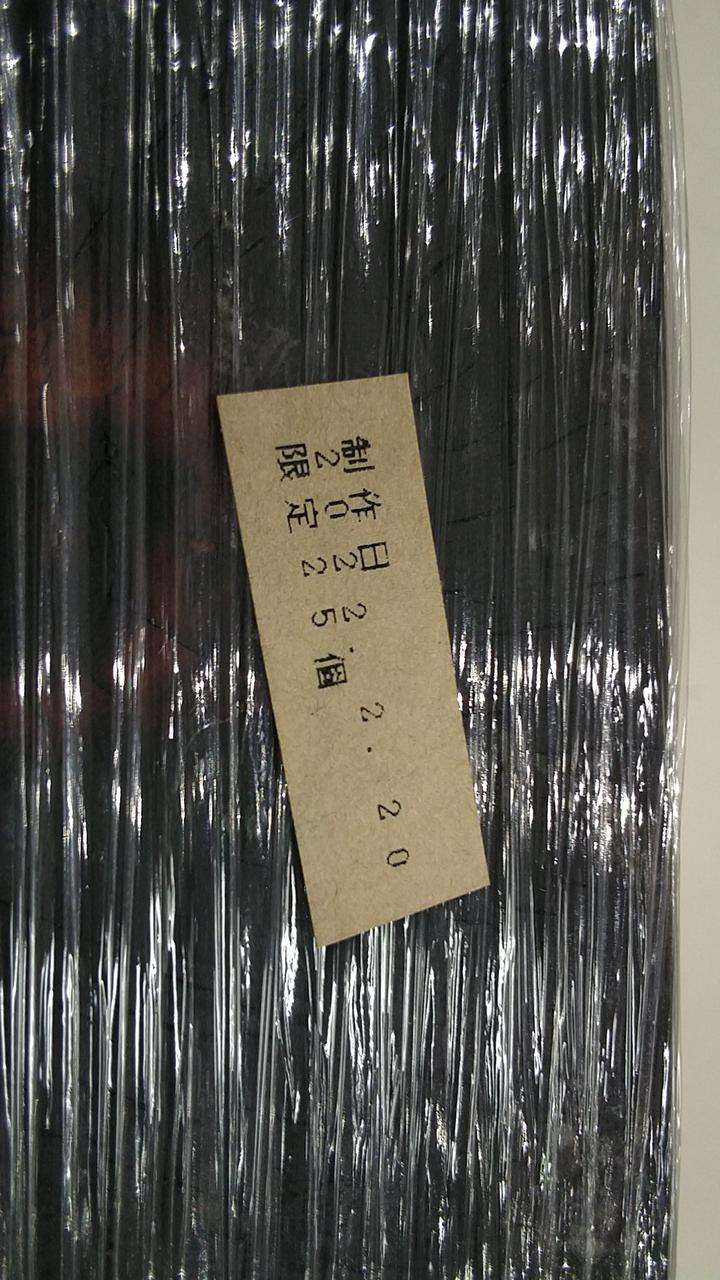 制作日
2022.2.20
限定25個